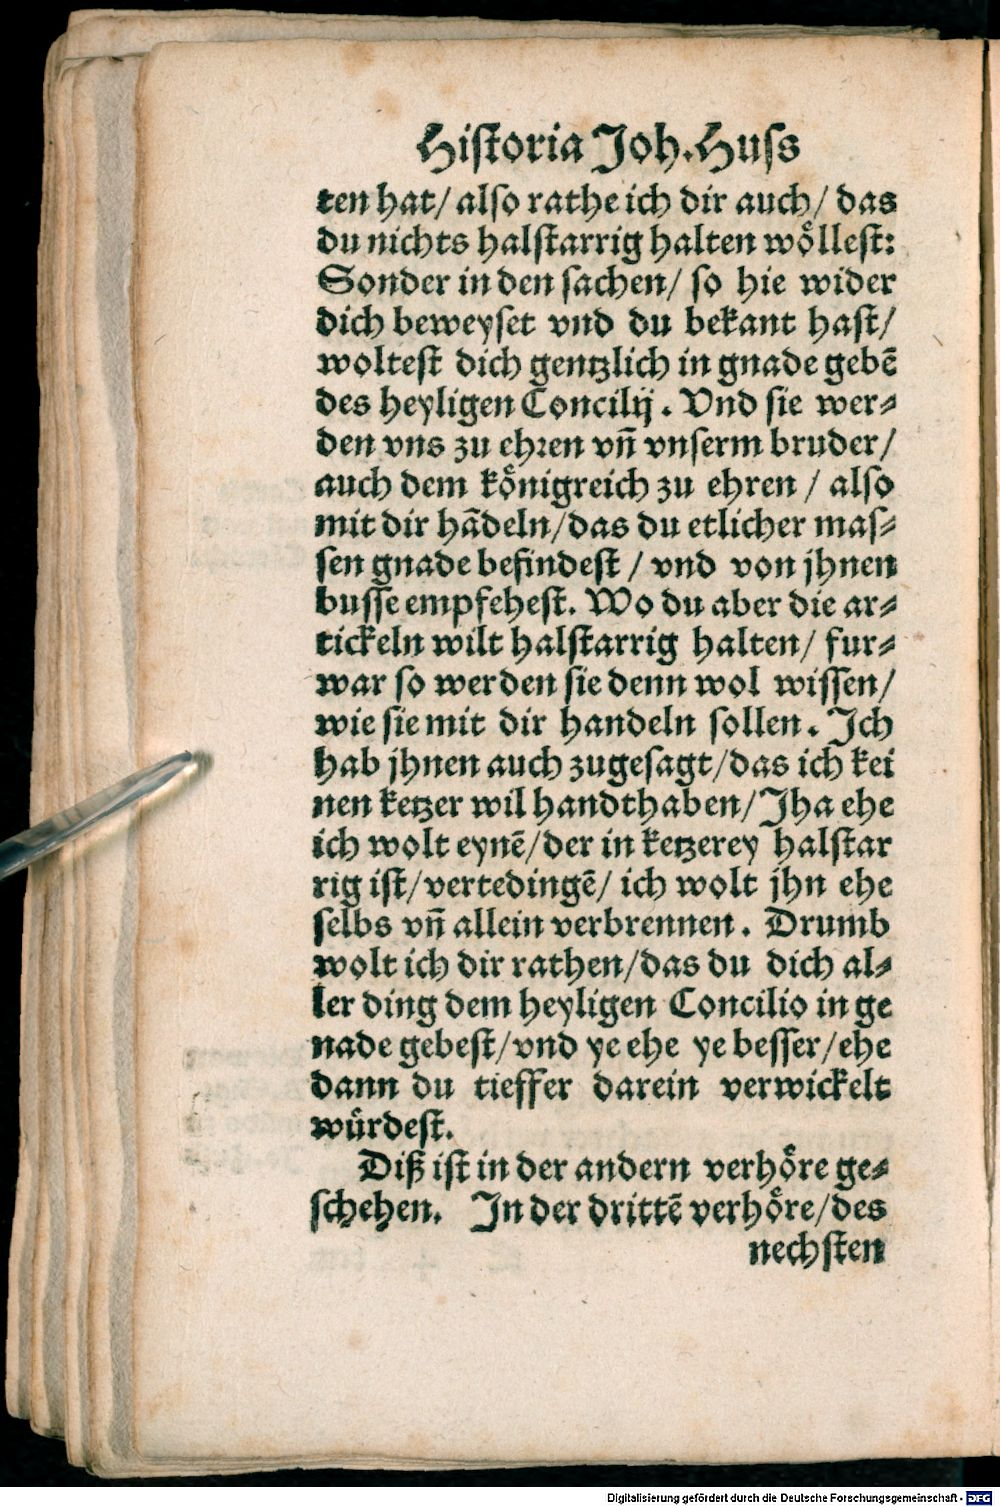 Historia Joh. Huss
ten hat/ also rathe ich dir auch/ das
du nichts halstarrig halten wöllest:
Sonder in den sachen/ so hie wider
dich beweyset vnd du bekant hast/
woltest dich gentzlich in gnade gebē
des heyligen Concilij. Vnd sie wer⸗
den vns zu ehren vn̄ vnserm bruder/
auch dem königreich zu ehren / also
mit dir hādeln/das du etlicher mas⸗
sen gnade befindest / vnd von jhnen
busse empfehest. Wo du aber die ar⸗
tickeln wilt halstarrig halten/ fur⸗
war so werden sie denn wol wissen/
wie sie mit dir handeln sollen. Ich
hab jhnen auch zugesagt/das ich kei
nen ketzer wil handthaben/Jha ehe
ich wolt eynē/der in ketzerey halstar
rig ist/vertedingē/ ich wolt jhn ehe
selbs vn̄ allein verbrennen. Drumb
wolt ich dir rathen/das du dich al⸗
ler ding dem heyligen Concilio in ge
nade gebest/vnd ye ehe ye besser/ehe
dann du tieffer darein verwickelt
würdest.
Diß ist in der andern verhöre ge⸗
schehen. In der drittē verhöre/des
nechsten
Digitalisierung gefördert durch die Deutsche Forschungsgemeinschaft - DFG